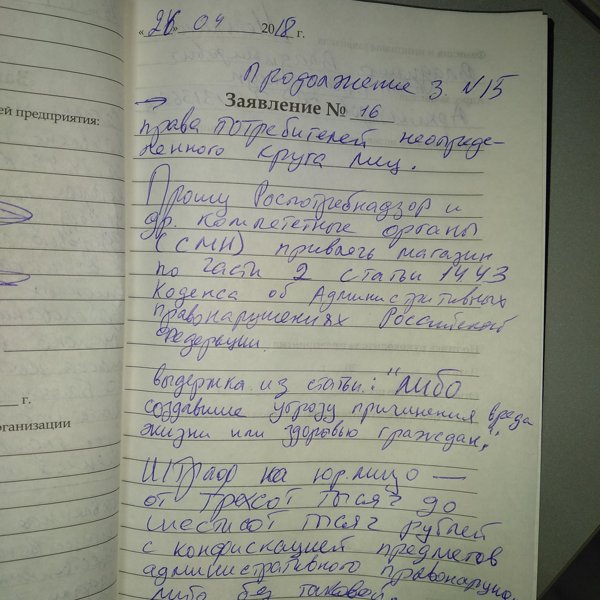 « 26 » 04 2018 г.
Продолжение З. N15
→ Заявление № 16
права потребителей неопреде-
ленного круга лиц.
Прошу Роспотребнадзор и
др. компетентные органы
(СМИ) привлечь магазин
по части 2 статьи 1443
Кодекса об Административных
правонарушениях Российской
Федерации
выдержка из статьи: "либо
создавшие угрозу причинения вреда
жизни или здоровью граждан,"
Штраф на юр.лицо —
от трехсот тысяч до
шестисот тысяч рублей
с конфискацией предметов
административного правонаруш.
либо без таковой.
ей предприятия:
г.
организации